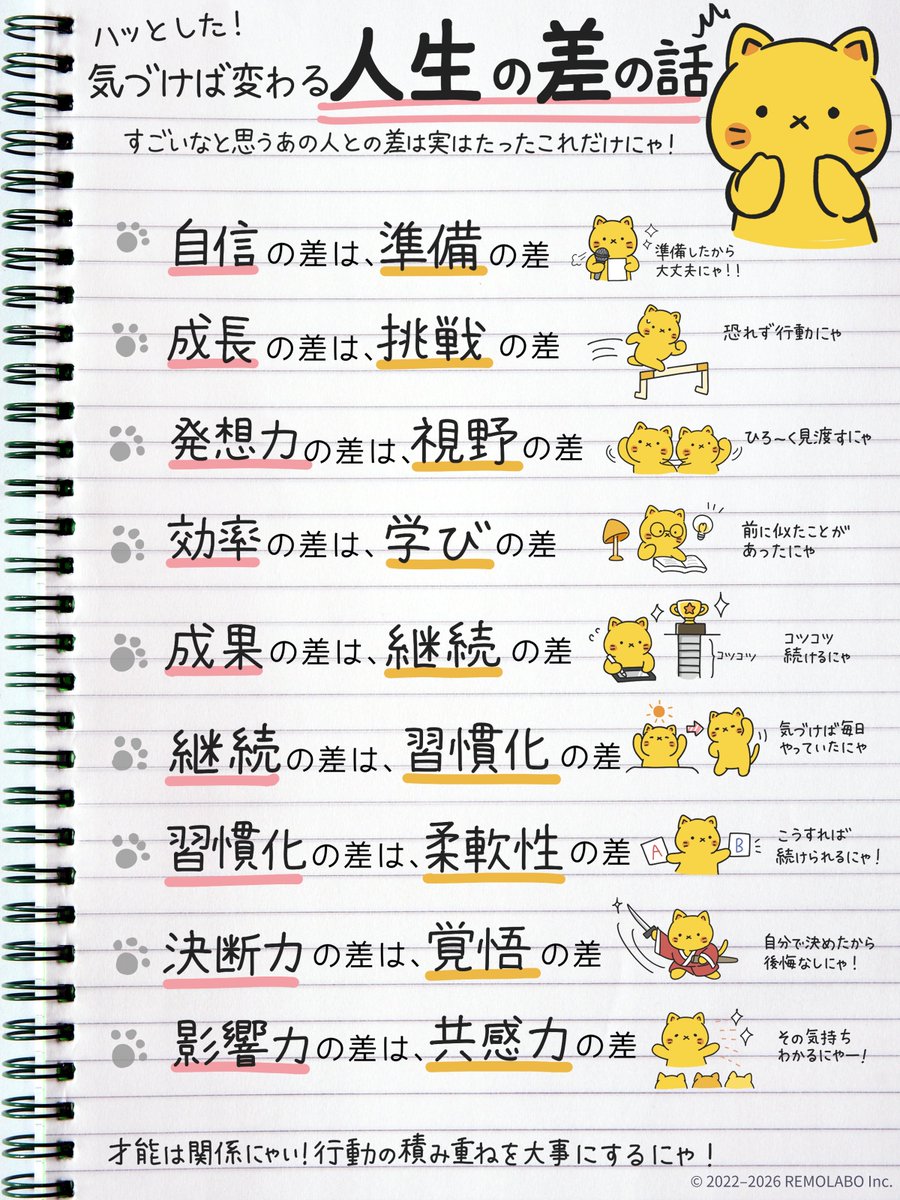 ハッとした!
気づけば変わる人生の差の話
すごいなと思うあの人との差は実はたったこれだけにゃ!
自信の差は、準備の差
準備したから
大丈夫にゃ!!
成長の差は、挑戦の差
恐れず行動にゃ
発想力の差は、視野の差
ひろ〜く見渡すにゃ
効率の差は、学びの差
前に似たことが
あったにゃ
成果の差は、継続の差
コツコツ
コツコツ
続けるにゃ
継続の差は、習慣化の差
気づけば毎日
やっていたにゃ
習慣化の差は、柔軟性の差
A
B
こうすれば
続けられるにゃ!
決断力の差は、覚悟の差
自分で決めたから
後悔なしにゃ!
影響力の差は、共感力の差
その気持ち
わかるにゃー!
才能は関係にゃい!行動の積み重ねを大事にするにゃ!
© 2022–2026 REMOLABO Inc.